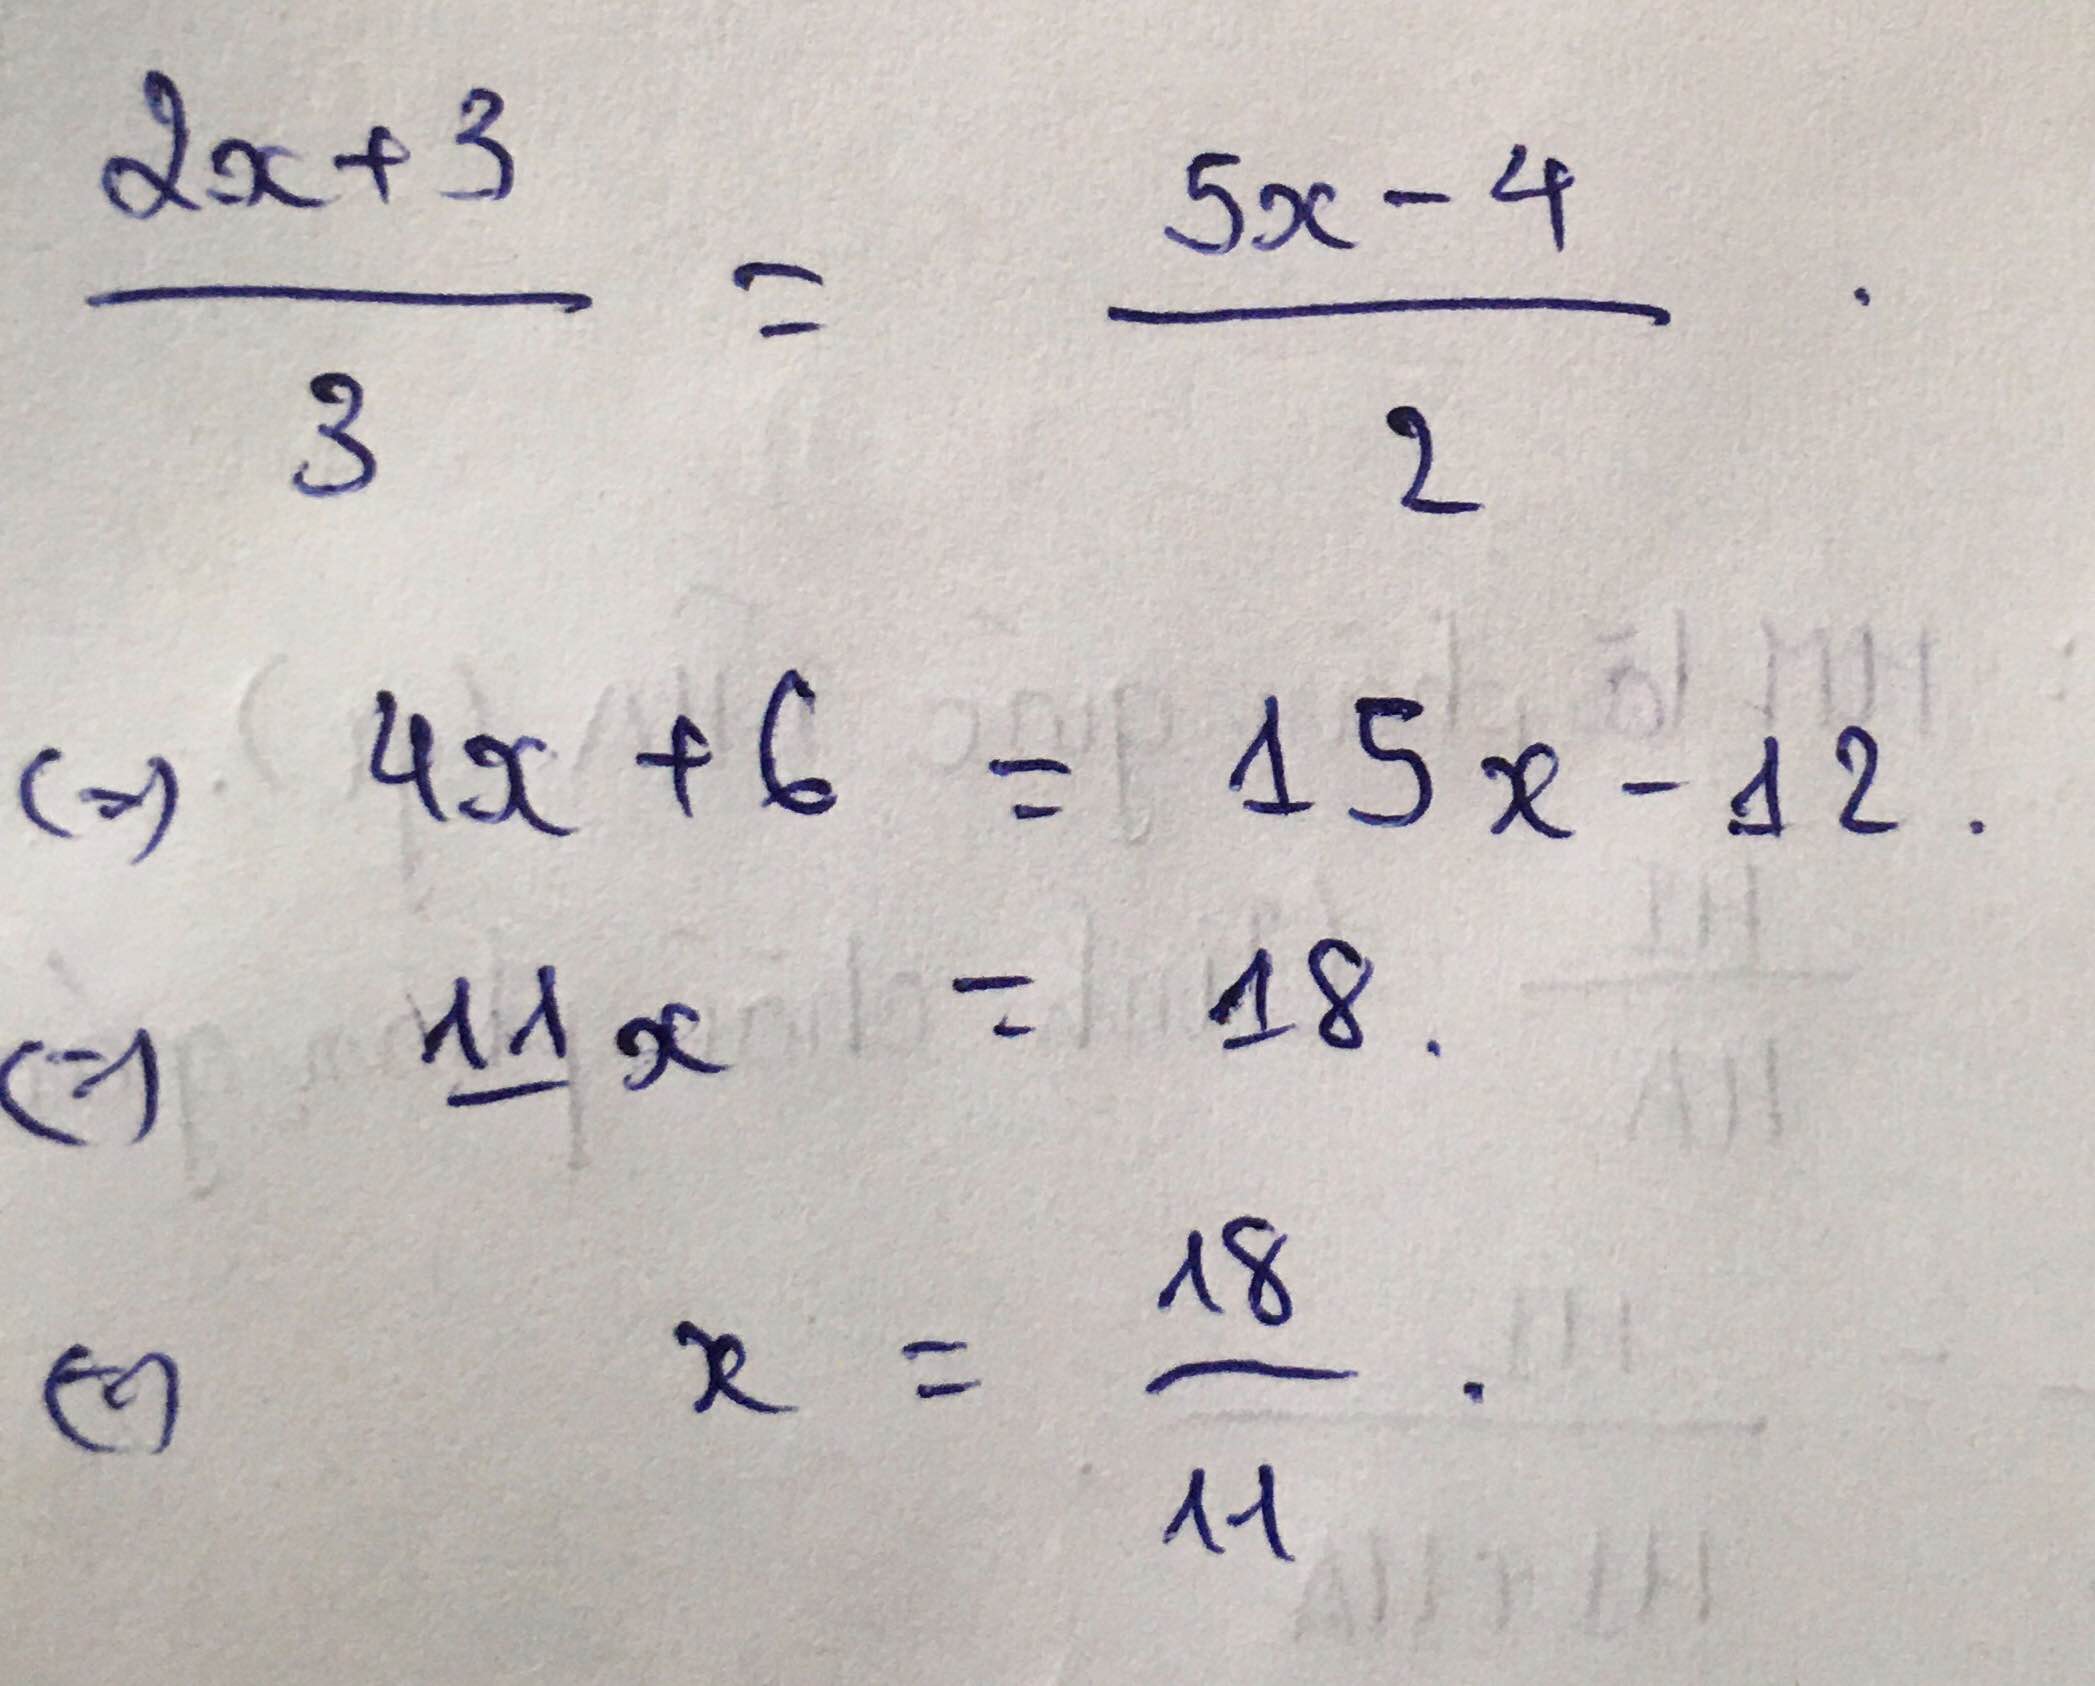 2x+3 / 3 = 5x-4 / 2 .
(=) 4x+6 = 15x-12.
(=) 11x = 18.
(=) x = 18 / 11 .